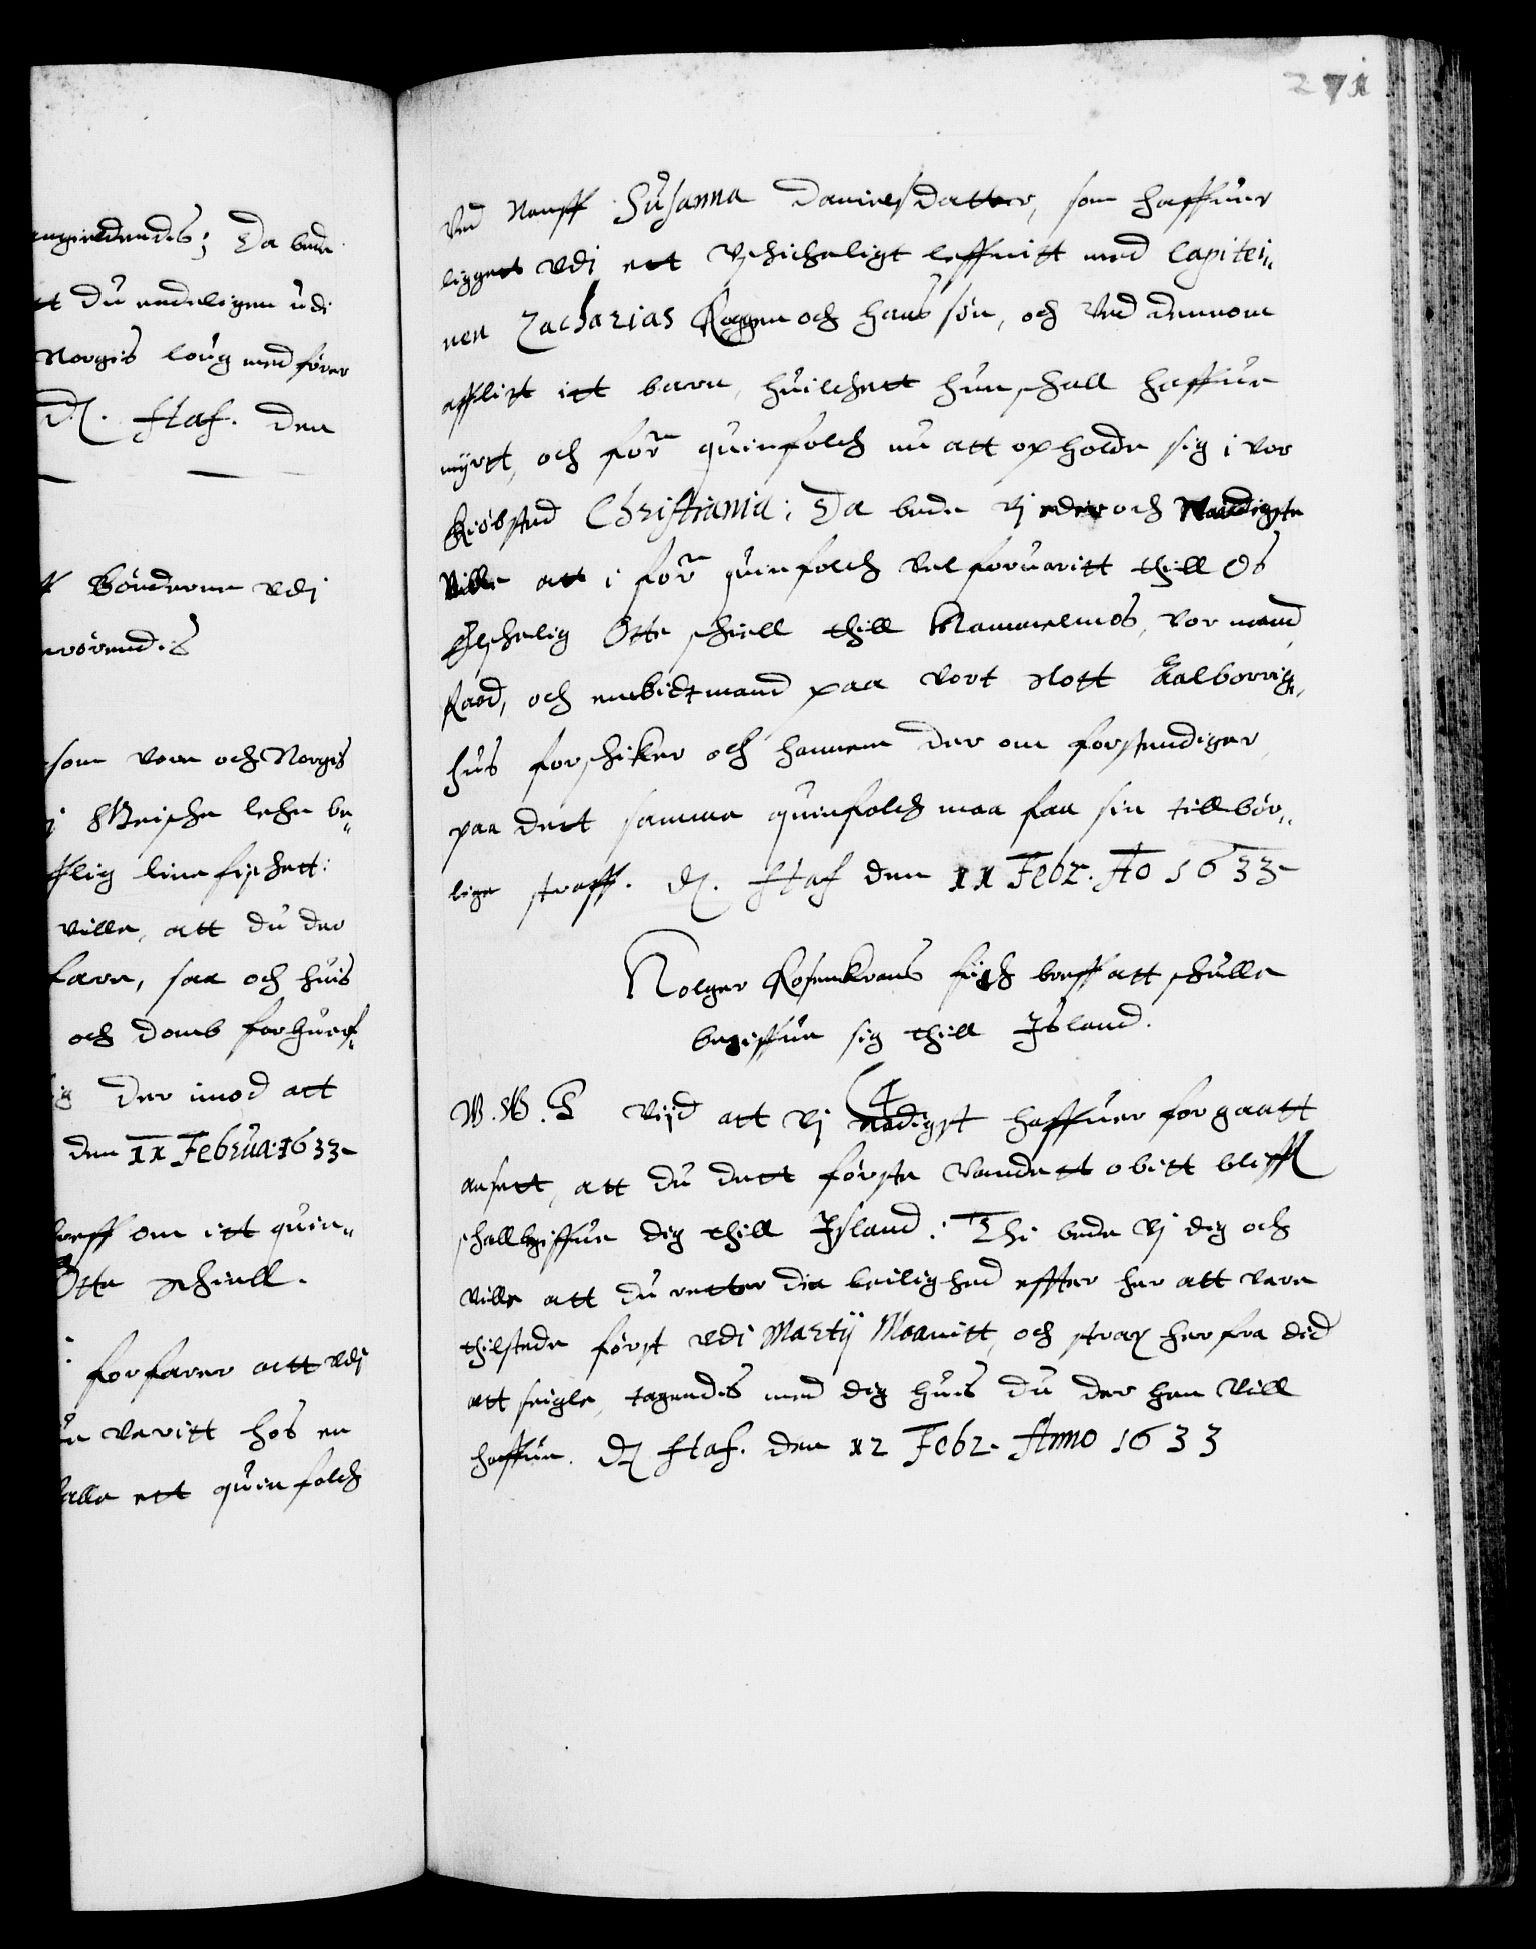 271
angieldendis; Da bede
att du endeligen udi
Norgis loug medfører
Dj. Haf. den
ff Bønderne udi
rørendis
som vore och Norgis
lehn be„
fflig line fischett:
ville, att du der
fare, saa och huis
och domb forhuerf„
ig der imod att
den 11 Februa: 1633
breff om itt quin„
Otte Schiell.
forfarer att udi
ue veritt hos en
kalle ett quinfolch
ved Nauff Susanna Danielsdatter, som haffuer
ligget udi ett uschicheligt leffnitt med Capitei„
nen Zacharias Roggen och hans søn, och ved dennom
afflitt itt barn, huilchett hun schall haffue
myrt, och for.ne quinfolch nu att opholde sig i vor
kiøbsted Christiania; Da bede vj eder och Naadigste
ville att i for.ne quinfolch velforvaritt thill Os
Elschelig Otte schiell thill Hammelmos, vor mand
Raad, och embidtmand paa vort slott Aalborrig„
hus forschicker och hannem der om forstendiger,
paa dett samme quinfolch maa faa sin tillbør„
lige straff. Dj. Haf den 11 Febr. Ao 1633
Holger Rosenkrans fich breff att schulle
begiffue sig thill Island.
W. G. T viid att vj nadigst haffuer for gaatt
ansett, att du dett første vandett obitt bliffr
schall begiffue dig thill Island. Thi bede vj dig och
ville att du retter din leilighed effter her att vere
thilstede først udi Martij Maanitt, och strax herfra did
att seigle, tagendis med dig huis du der hen vill
haffue. Dj Haf. den 12 Febr. Anno 1633